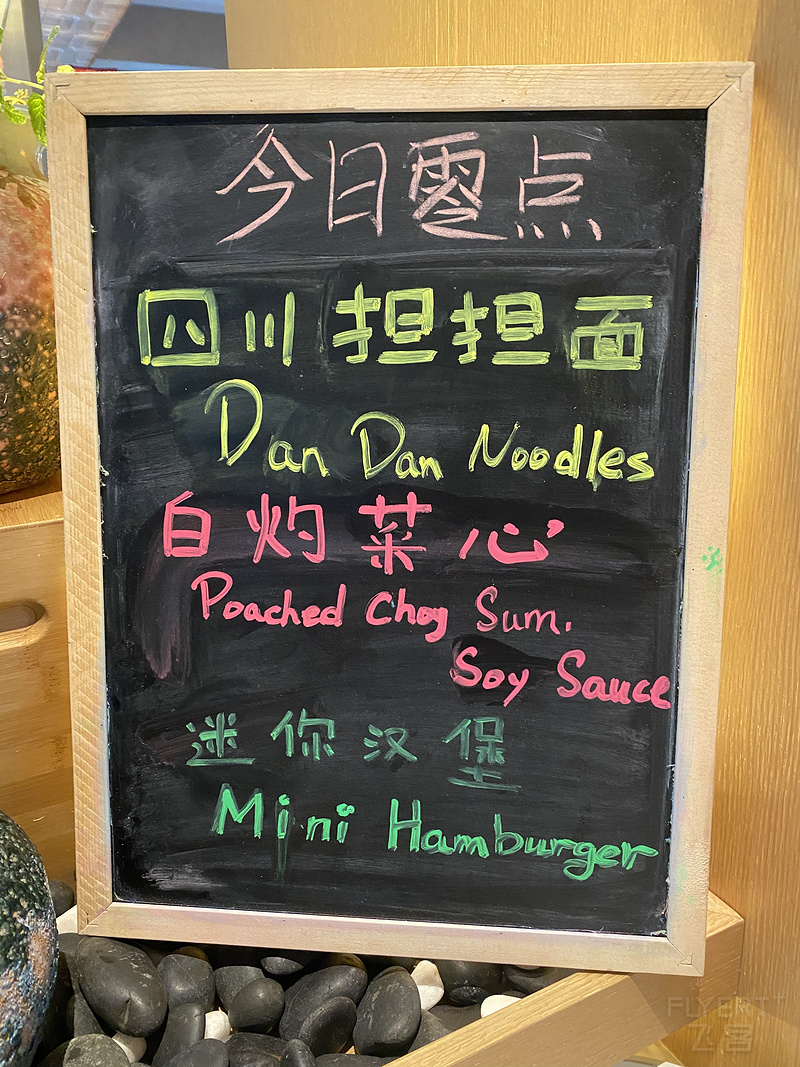 今日零点
四川担担面
Dan Dan Noodles
白灼菜心
Poached Choy Sum.
Soy Sauce
迷你汉堡
Mini Hamburger
FLYERT+
飞客